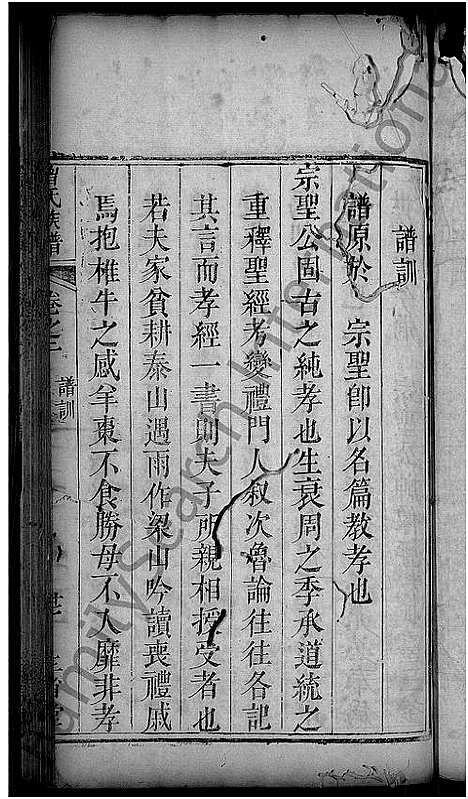 譜訓
譜原於 宗聖卽以名篇教孝也
宗聖公固古之純孝也生衰周之季承道統之
重釋聖經考變禮門人叙次魯論往往各記
其言而孝經一書則夫子所親相授受者也
若夫家貧耕泰山遇雨作梁山吟讀喪禮戚
焉抱椎牛之感羊棗不食勝母不入靡非孝
曾氏族譜 卷之三 譜訓
FamilySearch International